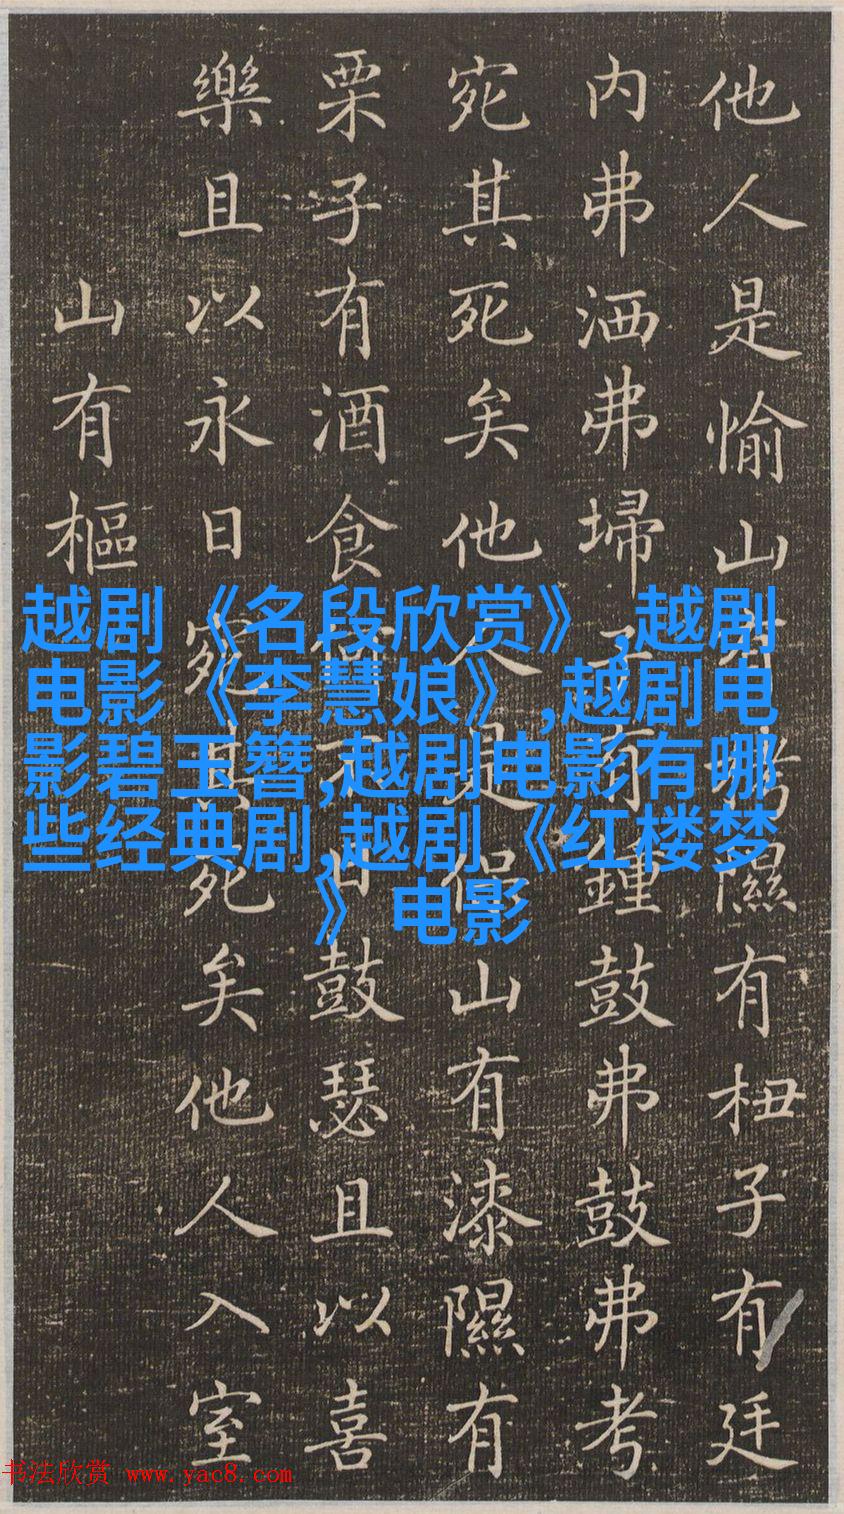 他人是愉山有栲隰有杻子有廷
内弗洒弗埽子有鍾鼓弗鼓弗考
宛其死矣他人是保山有漆隰有
栗子有酒食何不日鼓瑟且以喜
樂且以永日宛其死矣他人入室
山有樞
越剧《名段欣赏》,越剧
电影《李慧娘》,越剧电
影碧玉簪,越剧电影有哪
些经典剧,越剧《红楼梦
》电影
书法欣赏 www.yac8.com